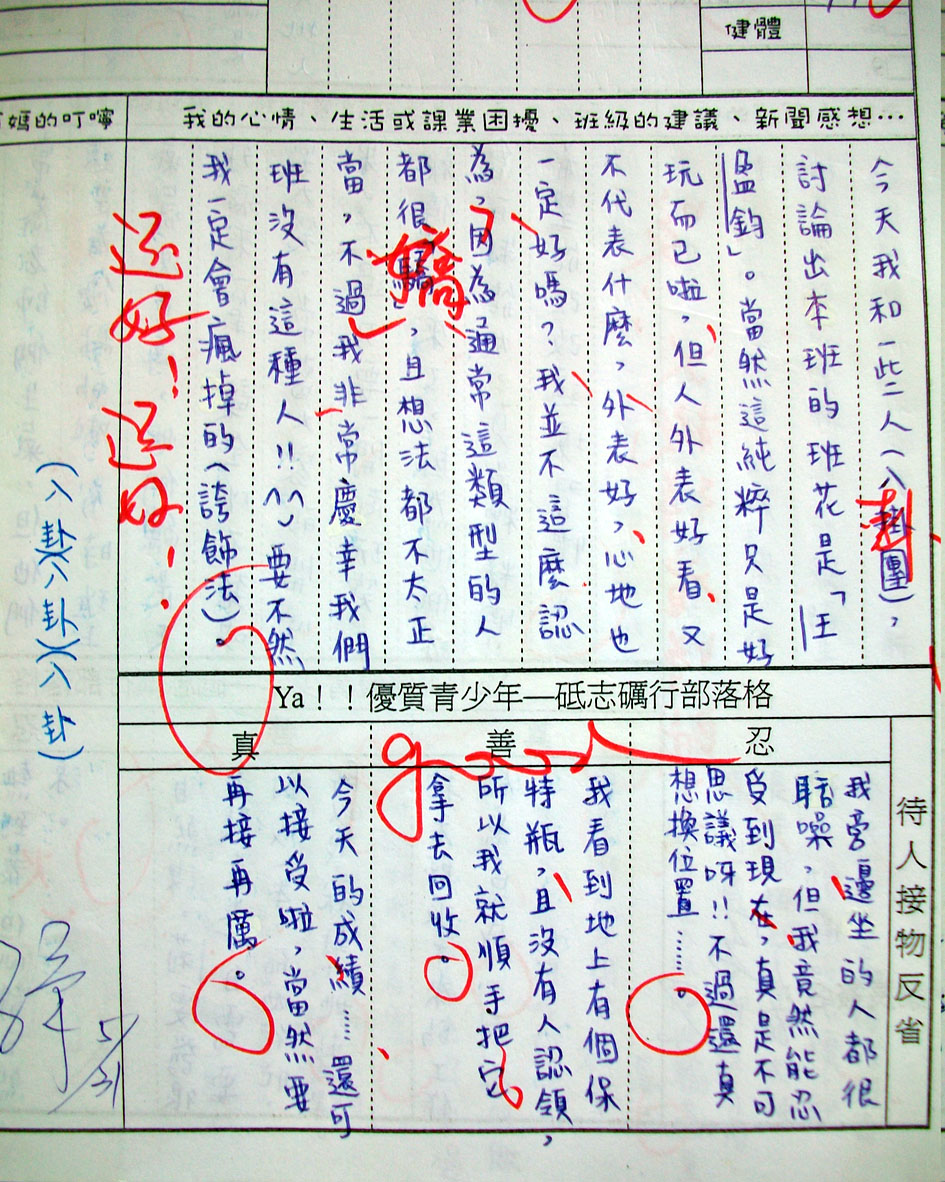 健體
媽的叮嚀
我的心情、生活或課業困擾、班級的建議、新聞感想…
今天我和一些人(八掛團),
討論出本班的班花是「王
孟鈞」。當然這純粹只是好
玩而已啦,但人外表好看又
不代表什麼,外表好,心地也
一定好嗎?我並不這麼認
為,因為通常這類型的人
都很「驕」,且想法都不太正
當,不過我非常慶幸我們
班沒有這種人!!^^~要不然
我一定會瘋掉的(誇飾法)。
卦
嬌
還好!還好!
(八卦)(八卦)(八卦)
Ya!!優質青少年—砥志礪行部落格
待人接物反省
忍
我旁邊坐的人都很
聒噪,但我竟然能忍
受到現在,真是不可
思議呀!!不過還真
想換位置……。
善
我看到地上有個保
特瓶,且沒有人認領,
所以我就順手把它
拿去回收。
真
今天的成績……還可
以接受啦,當然要
再接再厲。
good
5/31